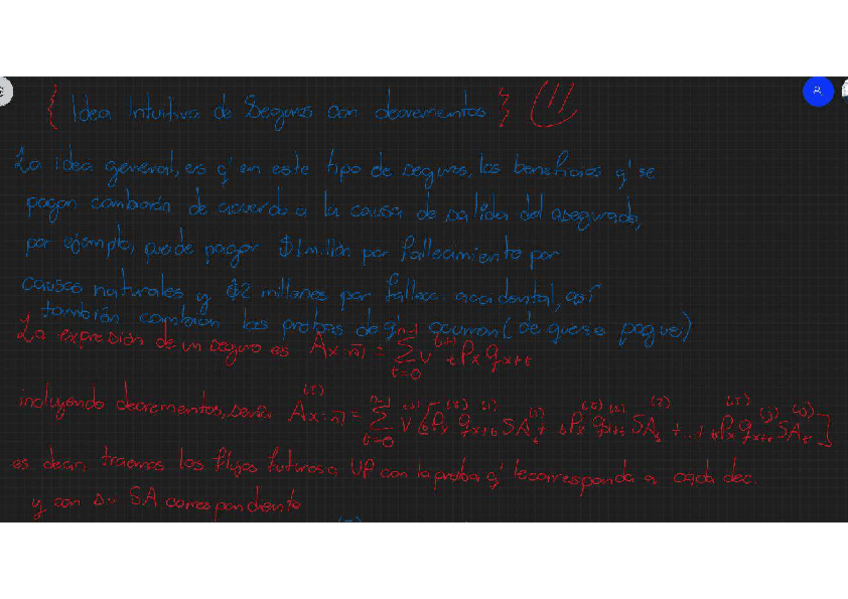 { Idea Intuitiva de Seguros con decrementos }
La idea general, es q' en este tipo de seguros, los beneficios q' se
pagan cambiarán de acuerdo a la causa de salida del asegurado,
por ejemplo, puede pagar $1 millón por fallecimiento por
causas naturales y $2 millones por fallec. accidental, así
también cambian las probas de q' ocurran (de que se pague)
La expresión de un seguro es A x:n̅| = Σ_{t=0}^{n-1} v^{(t+1)} ₜPₓ qₓ₊ₜ
incluyendo decrementos, sería A^{(τ)} x:n̅| = Σ_{t=0}^{n-1} v [ₜPₓ^{(τ)} qₓ₊ₜ^{(1)} SAₜ^{(1)} + ₜPₓ^{(τ)} qₓ₊ₜ^{(2)} SAₜ^{(2)} + ... + ₜPₓ^{(τ)} qₓ₊ₜ^{(j)} SAₜ^{(j)}]
es decir, traemos los flujos futuros a VP con la proba q' le corresponda a cada dec.
y con su SA correspondiente